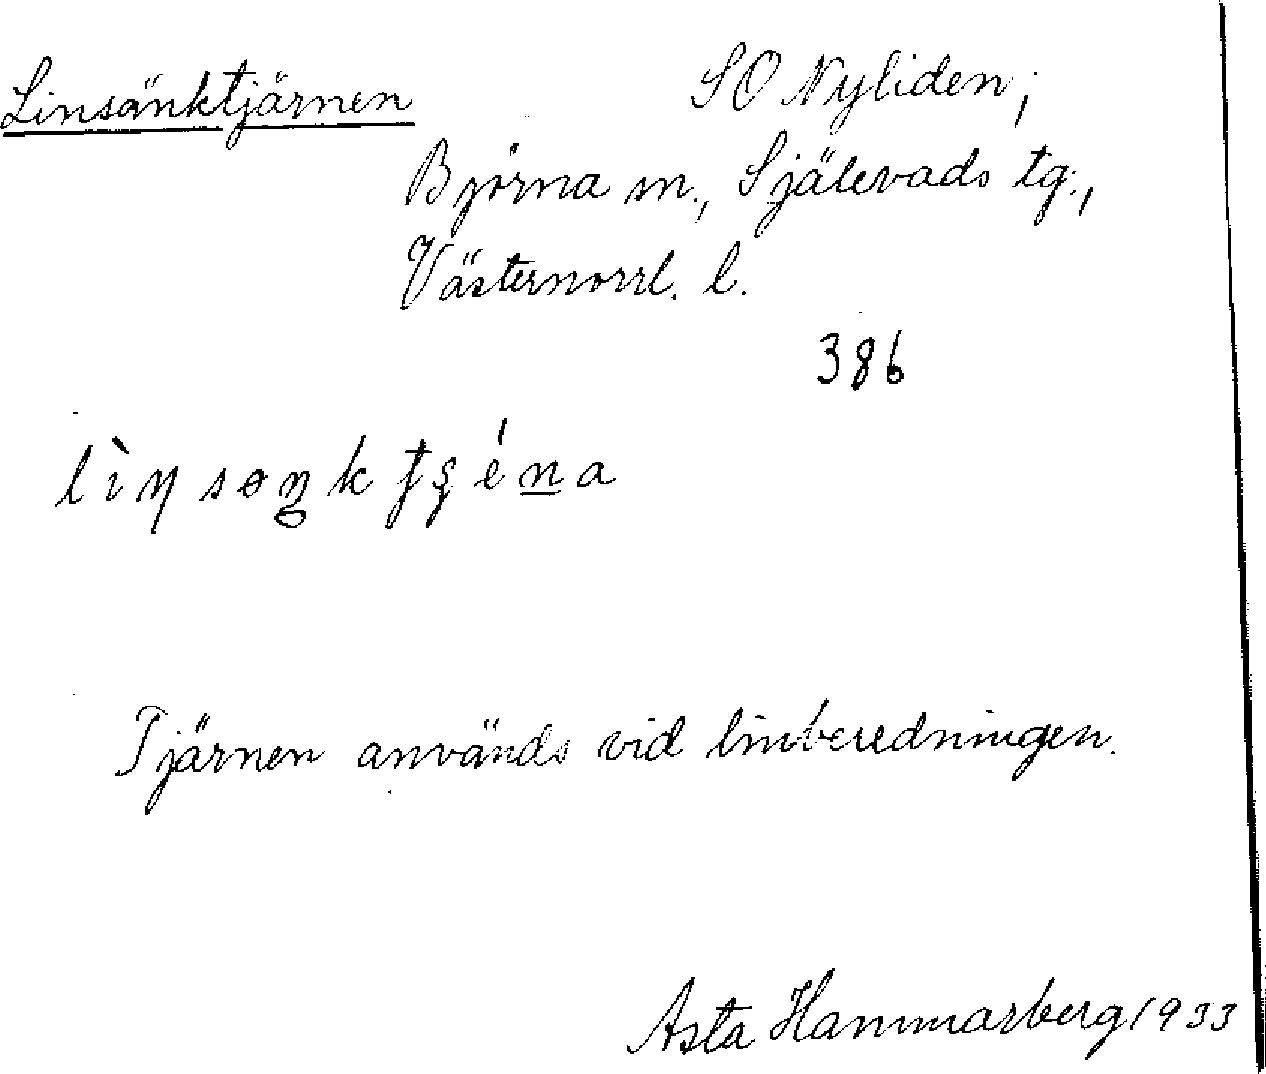 Linsänktjärnen
SO Nyliden;
Björna sn., Själevads tg.,
Västernorrl. l.
386
Tjärnen används vid linberedningen.
Asta Hammarberg 1933